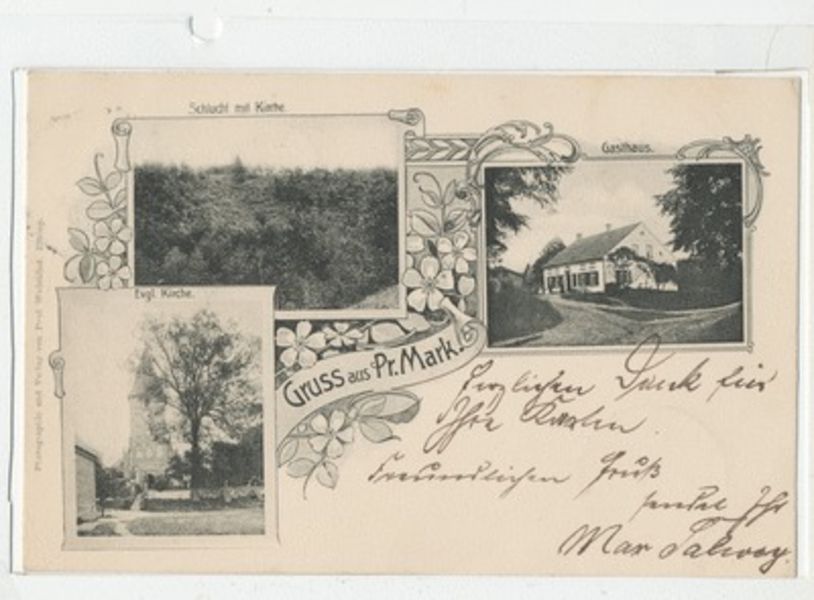 Schlucht mit Kirche.
Gasthaus.
Evgl. Kirche.
Gruss aus Pr. Mark.
Photographie und Verlag von
Herzlichen Dank für
Ihre Karten.
Freundlichen Gruß
sendet Ihr
Max